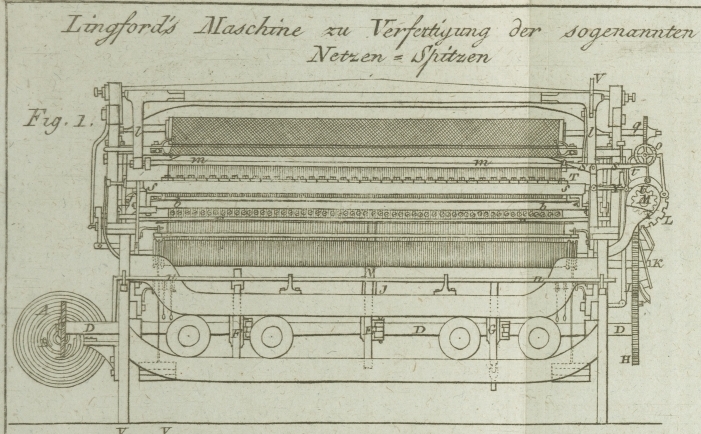 Lingford's Maschine zu Verfertigung der sogenannten
Netzen = Spitzen
Fig. 1.
V
l
l
q
o
m
m
T
t
f
f
b
b
M
L
K
A
D
M
J
n
F
F
D
G
D
H
V
V